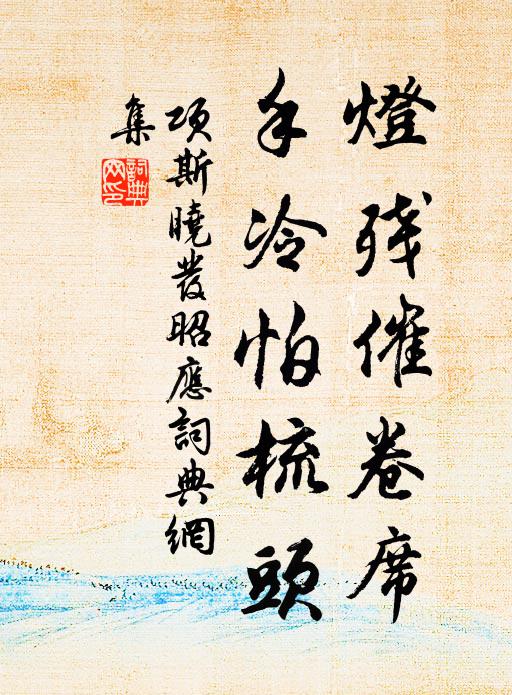 燈残催卷席
手冷怕梳頭
項斯曉發昭應詞典網
集
詞典
网印